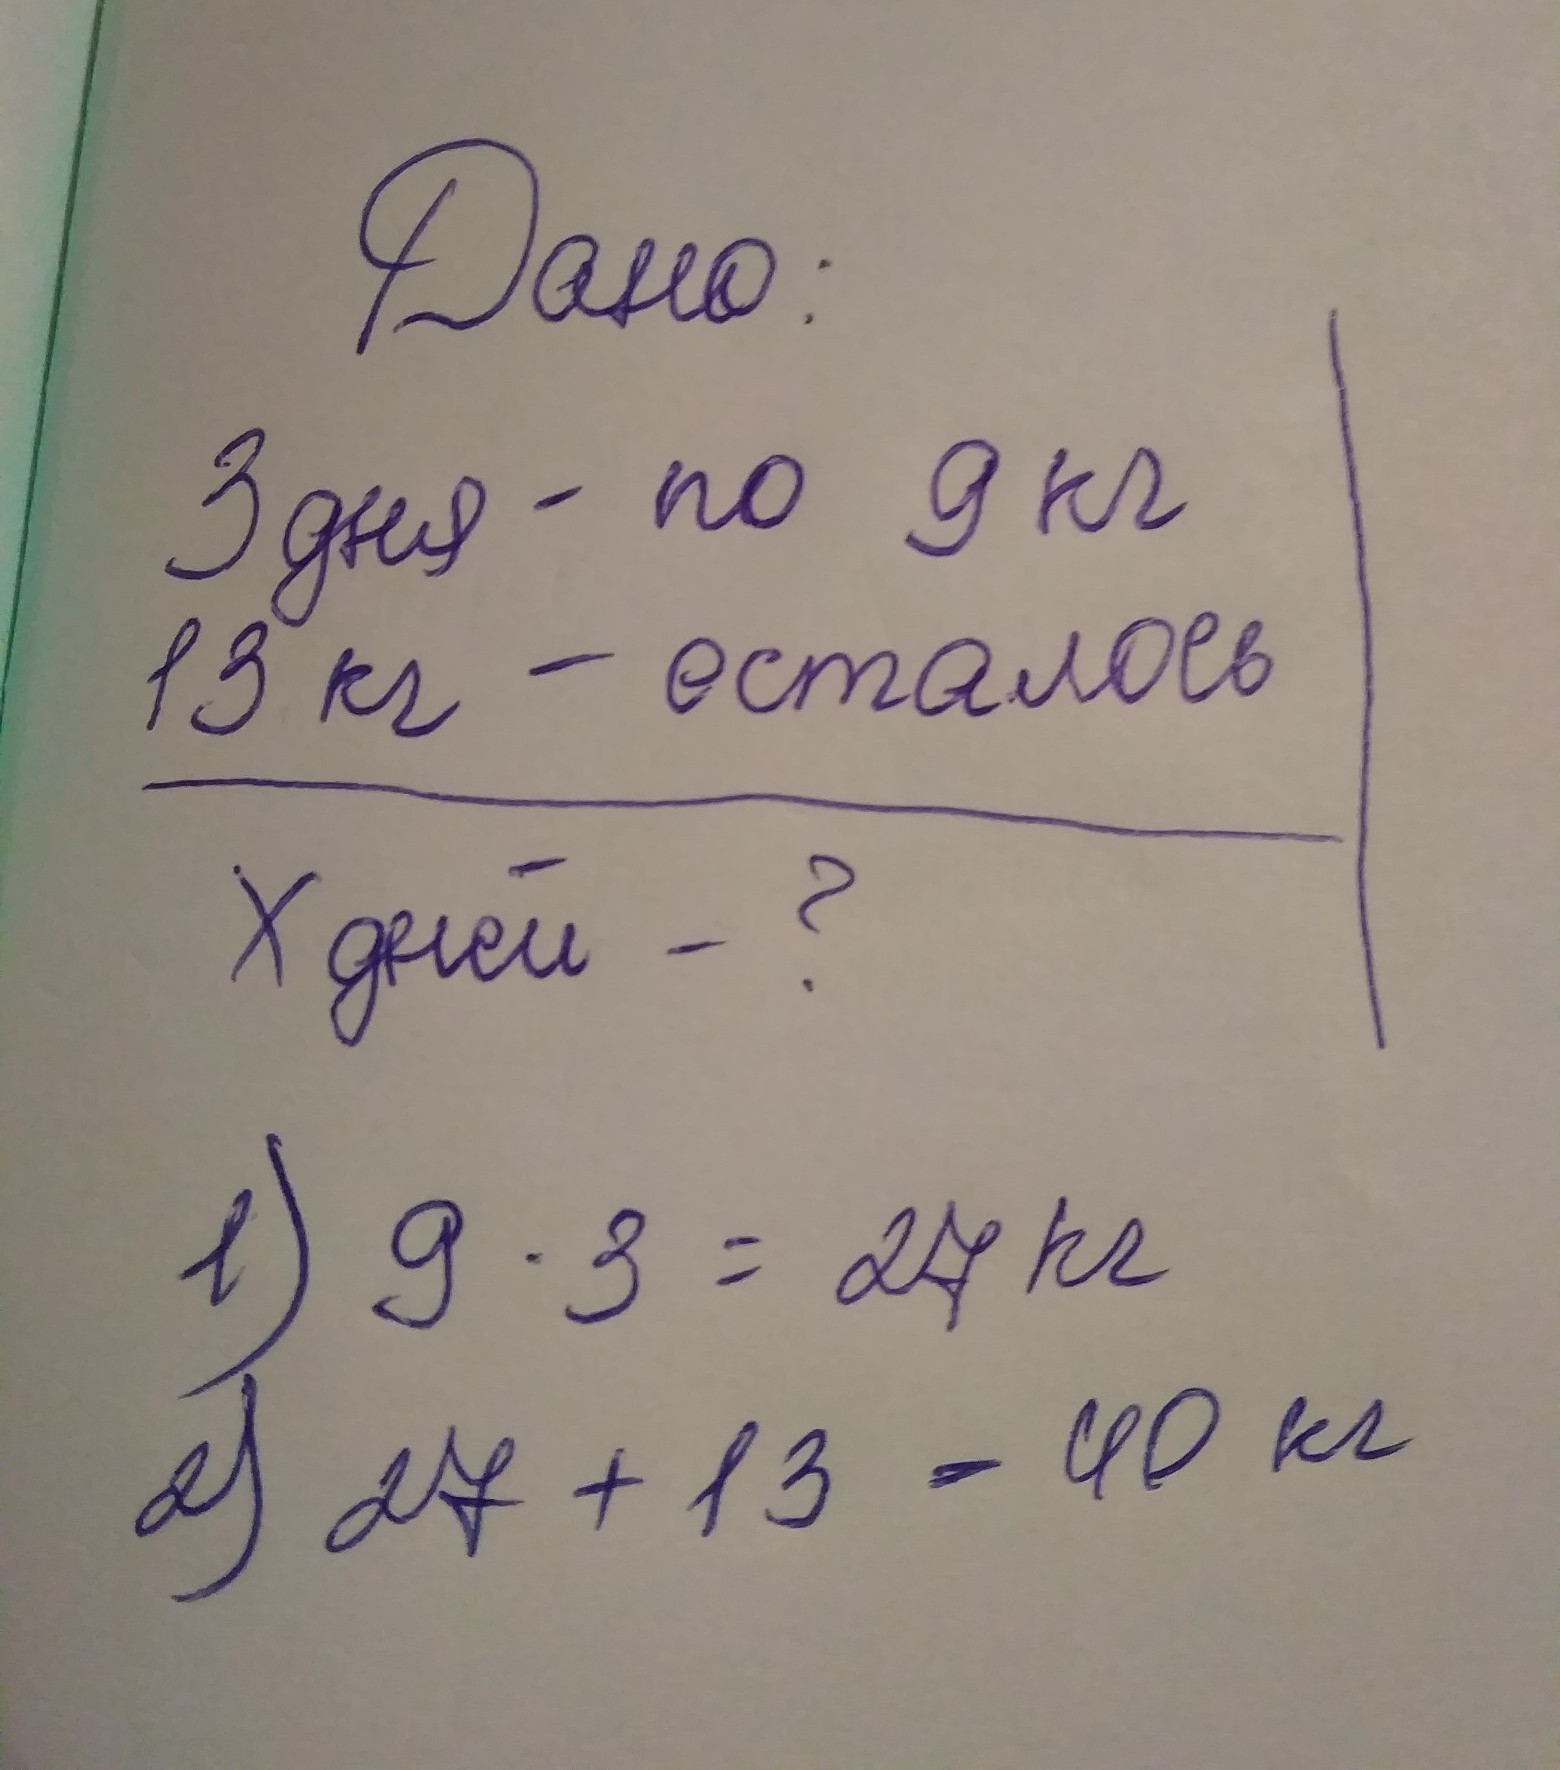 Дано:
3 дня - по 9 кг
13 кг - осталось
X дней - ?
1) 9 · 3 = 27 кг
2) 27 + 13 = 40 кг